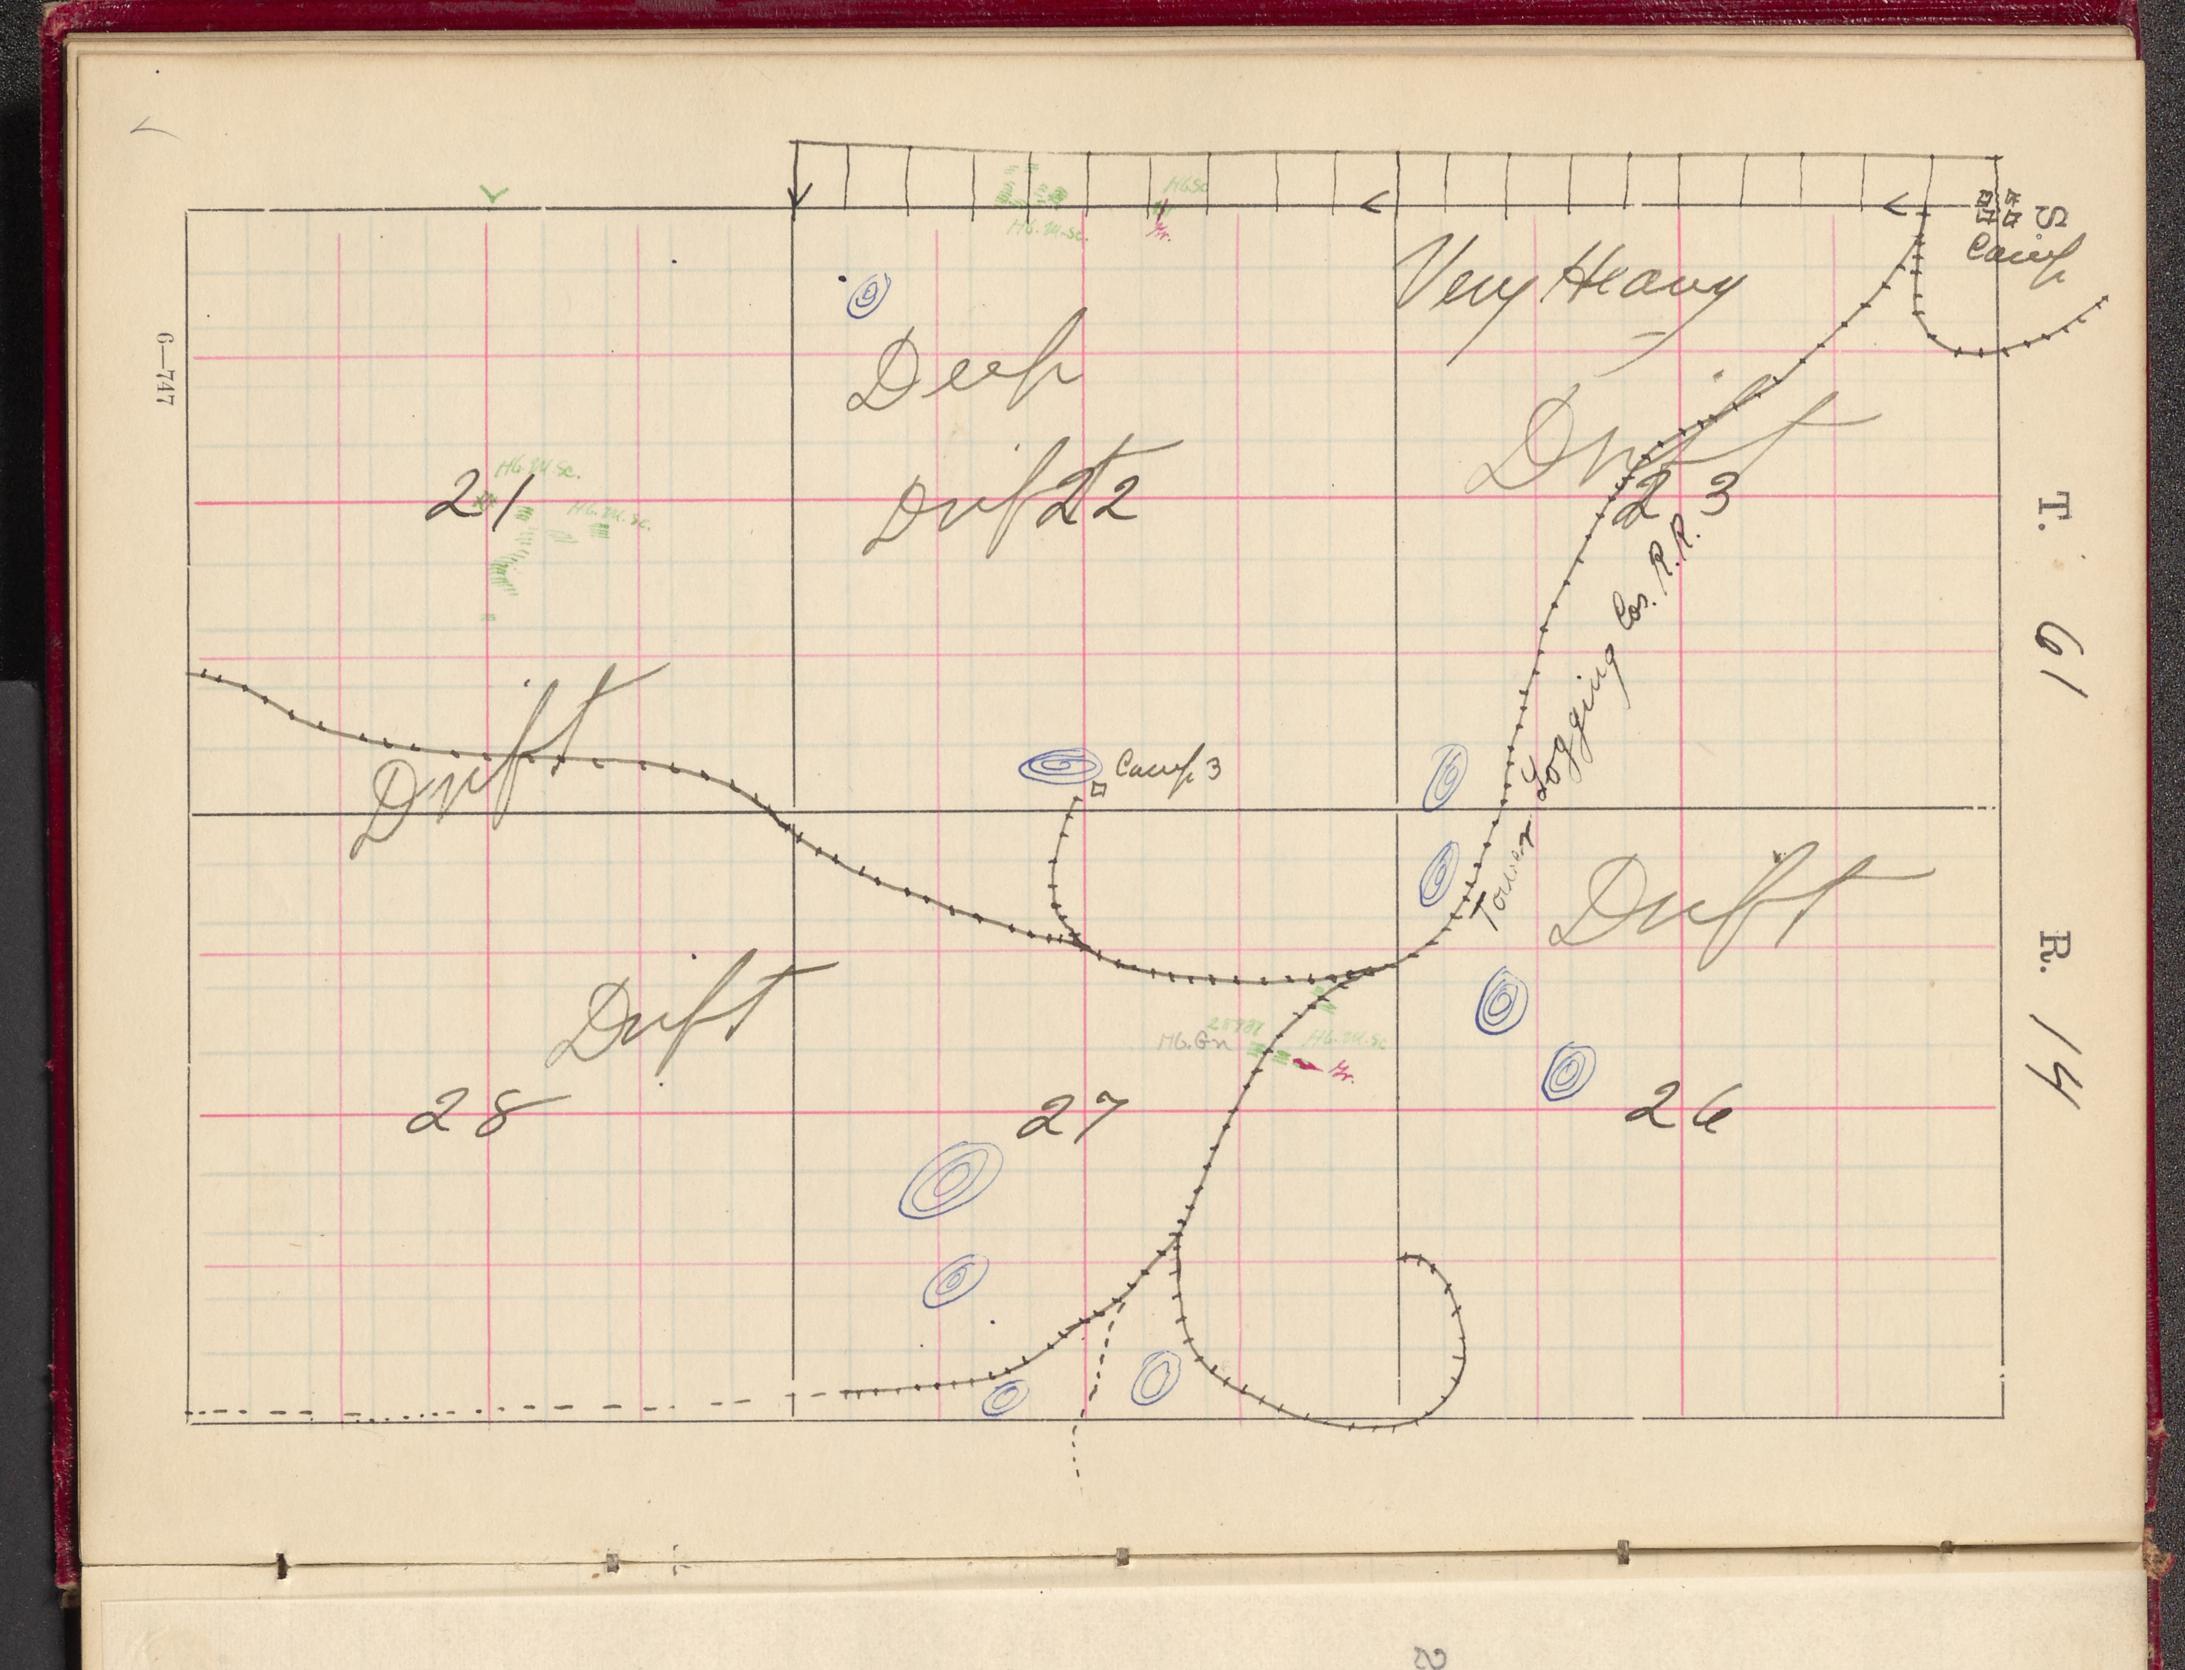 S
Camp
T. 61
R. 14
6—747
HG. M. Sc.
HGSc
Gr.
Very Heavy
Drift
Deep
Drift
21
22
23
HG. M. Sc.
HG. M. Sc.
Tower Logging Cos. R.R.
Drift
Camp 3
Drift
Drift
28
27
26
HG. Gn
HG. M. Sc
Gr.
2